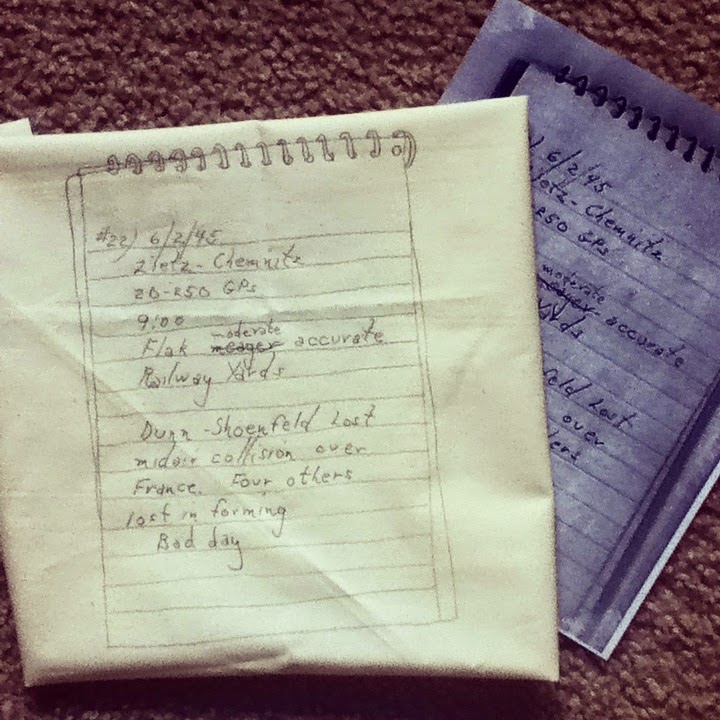 #22) 6/2/45
Zietz- Chemnitz
20-250 GPs
9:00
moderate
Flak meager accurate
Railway Yards
Dunn -Shoenfeld Lost
midair collision over
France. Four others
lost in forming
Bad day
) 6/2/45
ietz- Chemnitz
250 GPs
moderate
meager accurate
Yards
feld Lost
over
hers